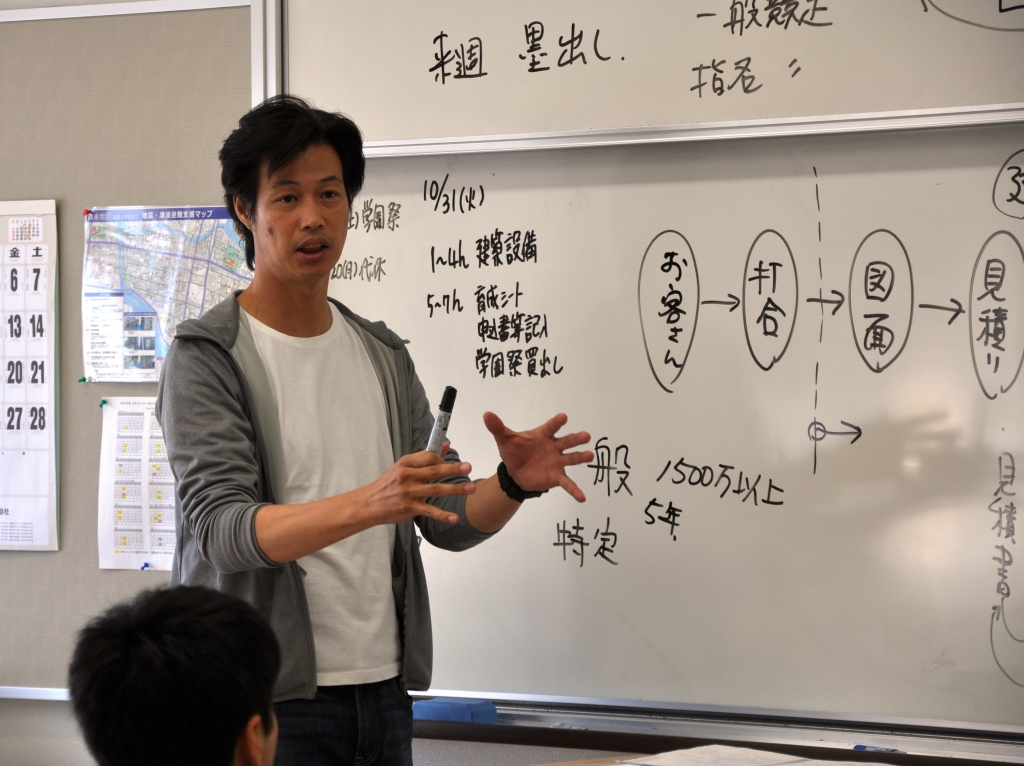 来週 墨出し.
一般競走
指名 〃
10/31(火)
1~4h 建築設備
5~7h 育成シート
申込書等記入
学園祭買出し
学園祭
20(日)代休
お客さん → 打合 → 図面 → 見積り
般 1500万以上
5年
特定
見積書
地震・津波避難支援マップ
金 土
6 7
13 14
20 21
27 28